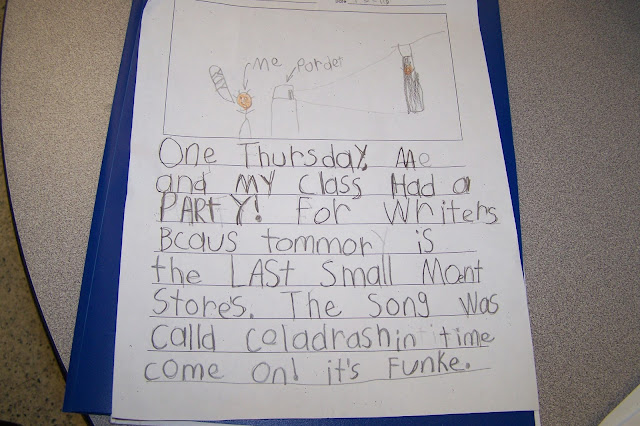 me porder
One Thursday, Me
and MY Class Had a
PARTY! For Writers
Bcaus tommory is
the LAST Small Moment
Store's. The Song was
calld celadrashin time
come on! it's Funke.